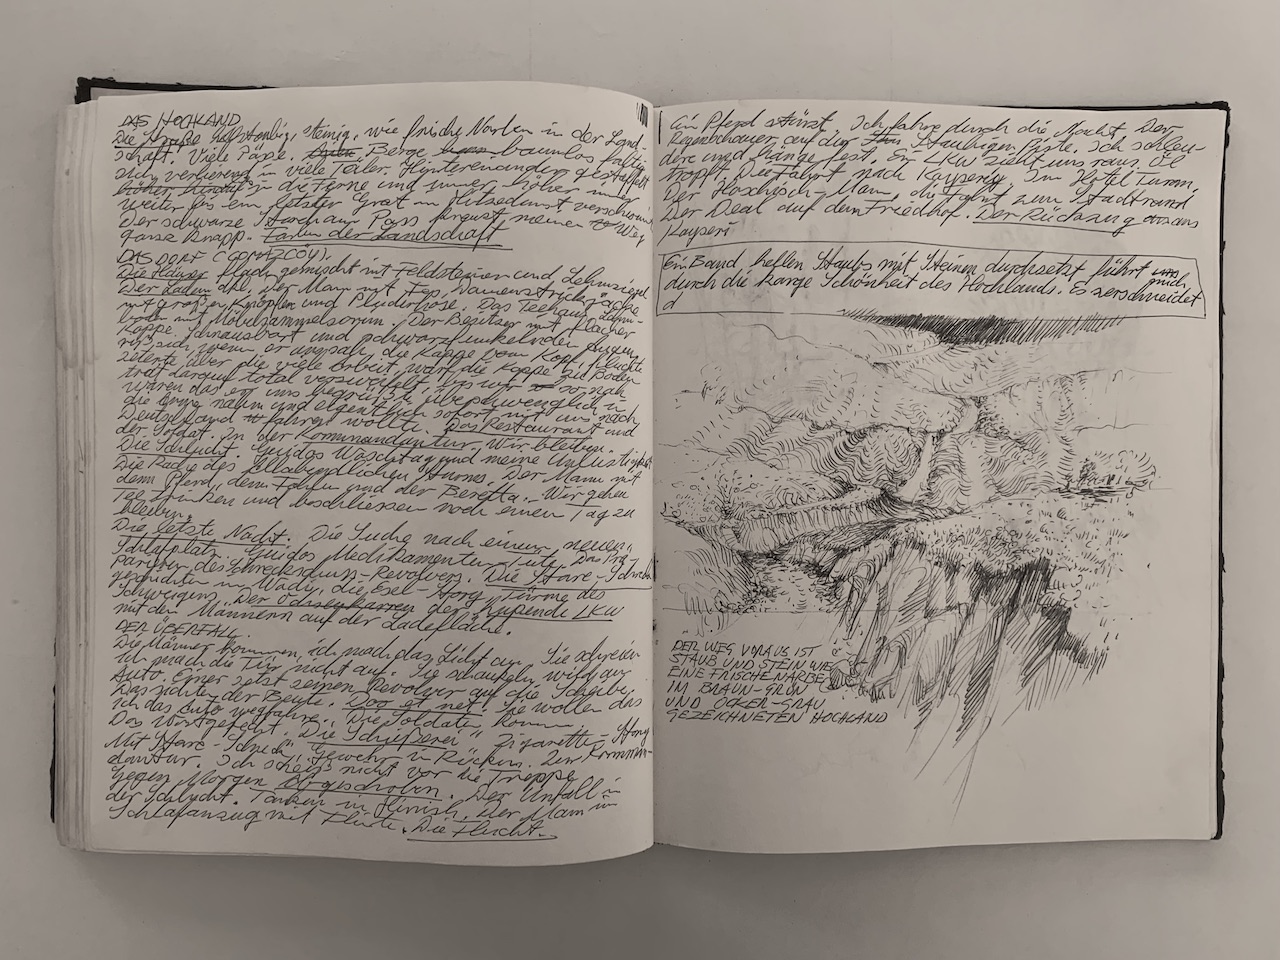 DAS HOCHLAND.
Die Straße hellstaubig, steinig, wie frische Narben in der Land-
schaft. Viele Pässe. Berge baumlos faltig
sich verlierend in viele Täler. Hintereinander gestaffelt
in die Ferne und immer höher immer
weiter bis ein letzter Grat im Hitzedunst verschwimmt.
Der schwarze Storch am Pass kreuzt meinen Weg
ganz knapp. Farben der Landschaft
DAS DORF
Die Häuser flach gemischt mit Feldsteinen und Lehmziegel
Der Laden der Mann mit Damenstrickjacke
mit großen Knöpfen und Pluderhose. Das Teehaus
mit Möbelsammelsorium. Der Besitzer mit flacher
Kappe. Schnausbart und schwarz funkelnden Augen
riß sich, wenn er uns sah, die Kappe vom Kopf, fluchte
zeterte über die viele Arbeit, warf die Kappe zu Boden
trat darauf total verzweifelt so nah
waren das er uns begrüßte überschwenglich u
die Arme nahm und eigentlich sofort mit uns nach
Deutschland fahren wollte. Das Restaurant und
der Staat. In der Kommandantur. Wir bleiben.
Die Schlucht. Guidos Waschtag und meine Unlustigkeit
Die Radie des allabendlichen Sturms. Der Mann mit
dem Pferd, dem Fohlen und der Beretta. Wir gehen
Tee trinken und beschliessen noch einen Tag zu
bleiben.
Die letzte Nacht. Die Suche nach einem neuen
Schlafplatz. Guidos Medikamenten
des Schreckschuss-Revolvers. Die
Geschichten im Wadi, die Esel-Story Türme des
Schweigens. Der Odsseykarren der hupende LKW
mit den Männern auf der Ladefläche.
DER ÜBERFALL.
Die Männer kommen, ich mach das Licht an. Sie schreien
ich mach die Tür nicht auf. Sie schaukeln wild am
Auto. Einer setzt seinen Revolver auf die Scheibe
Das zichten der Beule. Doo is net. Sie wollen das
ich das Auto wegfahre. Die Soldaten kommen.
Das Wortgefecht. Die Schießerei" Zigaretten-Story
Mit Gewehr im Rücken. Zur Komman-
dantur. Ich schlafs nicht vor die Treppe
Gegen Morgen Abgeschoben. Der Unfall in
der Schlucht. Tanken in Hinish. Der Mann im
Schlafanzug mit Flinte. Die Flucht.
Ein Pferd stürzt. Ich fahre durch die Nacht. Der
Regenschauer auf die staubigen Piste. Ich schleu-
dere und hänge fest. Ein LKW zieht uns raus. Öl
tropft. Die Fahrt nach Kayseri. Im Hotel Turan.
Der Haschisch-Mann, die Fahrt zum Stadtrand
Der Deal auf dem Friedhof. Der Rückzug aus
Kayseri
Ein Band hellen Staubs mit Steinen durchsetzt führt mich
durch die karge Schönheit des Hochlands. Es zerschneidet
d
DER WEG VORAUS IST
STAUB UND STEIN WIE
EINE FRISCHE NARBE
IM BRAUN-GRÜN
UND OCKER-GRAU
GEZEICHNETEN HOCHLAND